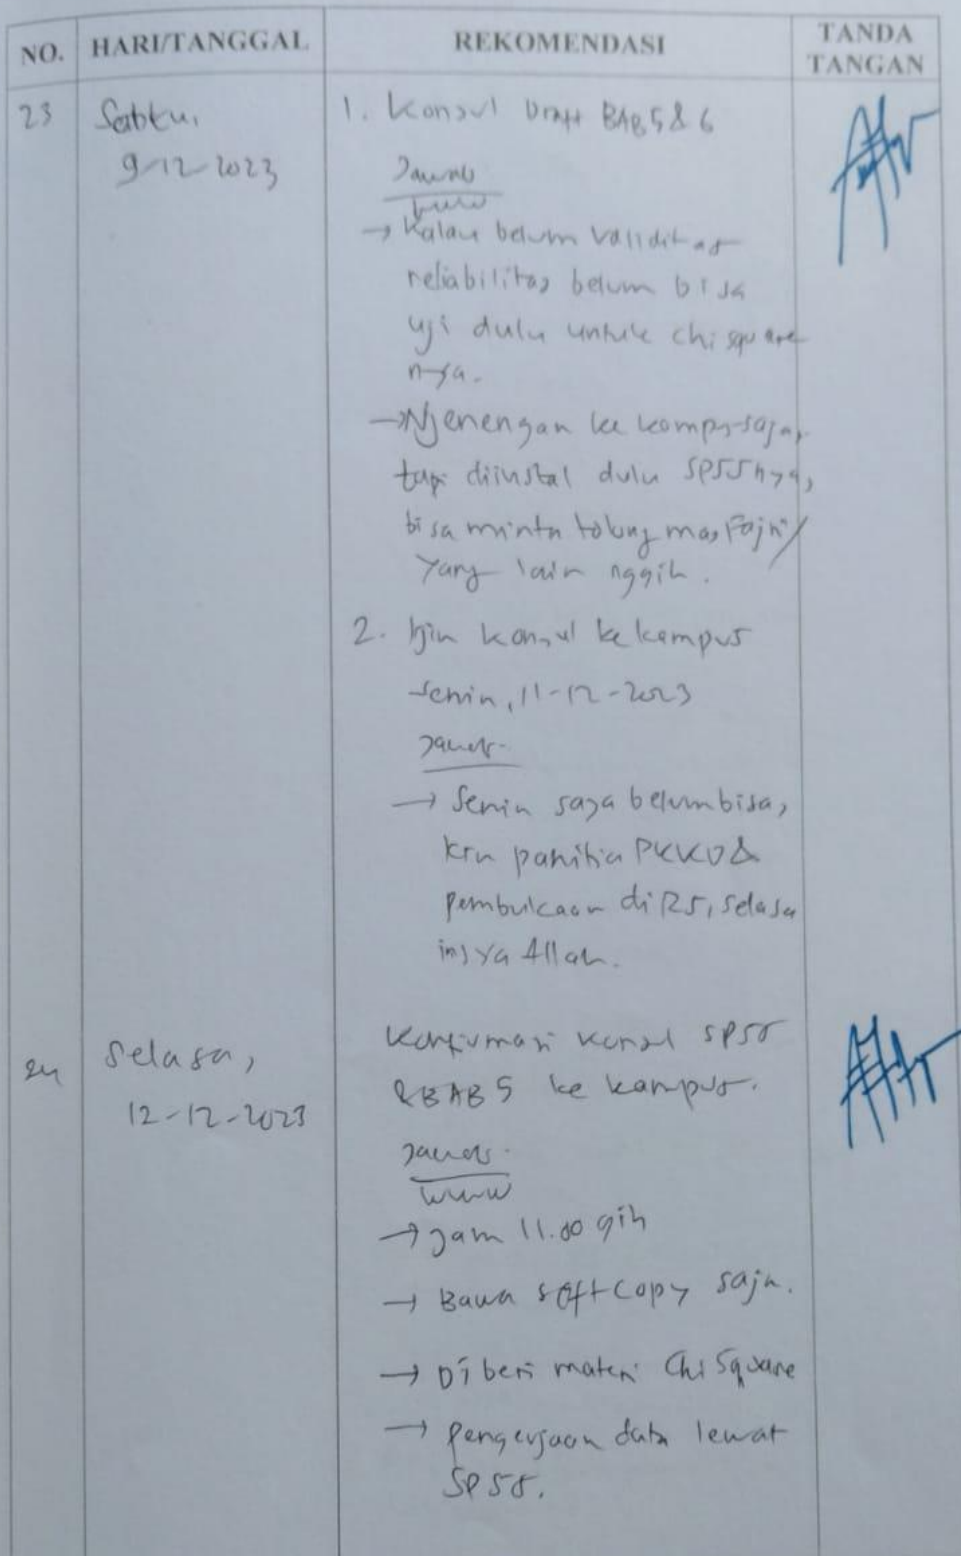 NO. HARI/TANGGAL REKOMENDASI TANDA TANGAN
23 Sabtu, 1. Konsul Draft BAB 5 & 6
9-12-2023
Jawab
→ Kalau belum validitas
reliabilitas belum bisa
uji dulu untuk chi square
nya.
→ Njenengan ke kampus saja,
tapi diinstal dulu SPSS nya,
bisa minta tolong mas Fajri/
yang lain nggih.
2. Ijin konsul ke kampus
Senin, 11-12-2023
Jawab.
→ Senin saya belum bisa,
krn panitia PKKD &
pembukaan di RS, selasa
insya Allah.
24 Selasa, Konfirmasi konsul SPSS
12-12-2023 & BAB 5 ke kampus.
Jawab.
→ Jam 11.00 gih
→ Bawa softcopy saja.
→ Diberi materi Chi Square
→ Pengerjaan data lewat
SPSS.